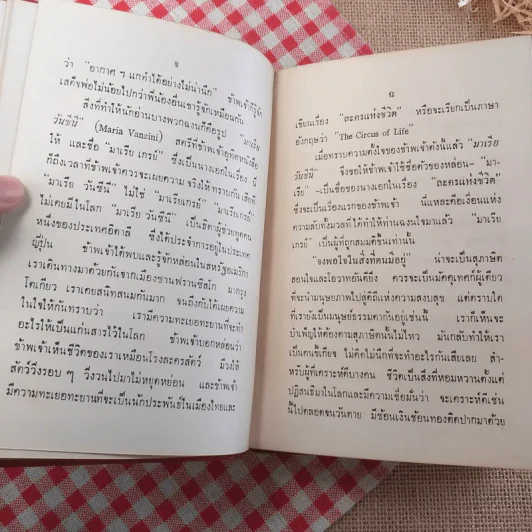 ง
ว่า "อากาศ ๆ แกทำได้อย่างไม่น่านึก" ข้าพเจ้าก็รู้จัก
เสด็จพ่อไม่น้อยไปกว่าพี่น้องอื่นเขารู้จักเหมือนกัน
สิ่งที่ทำให้นักอ่านบางพวกฉงนก็คือรูป "มาเรีย
วันซินี" (Maria Vanzini) สตรีที่ข้าพเจ้าอุทิศหนังสือ
ให้ และชื่อ "มาเรีย เกรย์" ซึ่งเป็นนางเอกในเรื่อง นี่
ก็ถึงเวลาที่ข้าพเจ้าควรจะเผยความ จริงให้ ทราบกัน เสียที
"มาเรีย วันซินี" ไม่ใช่ "มาเรียเกรย์" "มาเรียเกรย์"
ไม่เคยมีในโลก "มาเรีย วันซินี" เป็นธิดาผู้ช่วยทูตคน
หนึ่งของประเทศอิตาลี ซึ่งได้ประจำการอยู่ในประเทศ
ญี่ปุ่น ข้าพเจ้าได้พบและรู้จักหล่อนในสหรัฐอเมริกา
เราเดินทางมาด้วยกันจากเมืองซานฟรานซิสโก มากรุง
โตเกียว เราเคยสนิทสนมกันมาก จนถึงกับได้เผยความ
ในใจให้กันทราบว่า เรามีความทะเยอทะยานที่จะทำ
อะไรให้เป็นแก่นสารไว้ในโลก ข้าพเจ้าบอกหล่อนว่า
ข้าพเจ้าเห็นชีวิตของเราเหมือนโรงละครสัตว์ มีวงให้
สัตว์วิ่งรอบ ๆ วิ่งวนไปมาไม่หยุดหย่อน และข้าพเจ้า
มีความทะเยอทะยานที่จะเป็นนักประพันธ์ในเมืองไทยและ
เขียนเรื่อง "ละครแห่งชีวิต" หรือจะเรียกเป็นภาษา
อังกฤษว่า "The Circus of Life"
เมื่อทราบความตั้งใจของข้าพเจ้าดังนี้แล้ว "มาเรีย
วันซินี" จึงขอให้ข้าพเจ้าใช้ชื่อตัวของหล่อน– "มา-
เรีย" –เป็นชื่อของนางเอกในเรื่อง "ละครแห่งชีวิต"
ซึ่งจะเป็นเรื่องแรกของข้าพเจ้า นี่แหละคือเงื่อนแห่ง
ความลับทั้งมวลที่ได้ทำให้ท่านฉงนใจมาแล้ว "มาเรีย
เกรย์" เป็นผู้ที่ถูกสมมติขึ้นเท่านั้น
"จงพอใจในสิ่งที่ตนมีอยู่" น่าจะเป็นสุภาษิต
สอนใจและโอวาทอันดียิ่ง ควรจะเป็นมัคคุเทศก์ผู้เดียว
ที่จะนำมนุษยภาพไปสู่คติแห่งความสงบสุข แต่ตราบใด
ที่เรายังเป็นมนุษย์ธรรมดากันอยู่เช่นนี้ เราก็เห็นจะ
บำเพ็ญให้ต้องตามสุภาษิตนั้นไม่ไหว มันกลับทำให้เรา
เป็นคนขี้เกียจ ไม่คิดไม่นึกที่จะทำอะไรกันเสียเลย สำ-
หรับผู้ที่เคราะห์ดีบางคน ชีวิตเป็นสิ่งที่หอมหวานตั้งแต่
ปฏิสนธิมาในโลกและมีความเชื่อมั่นว่า จะเคราะห์ดีเช่น
นี้ไปตลอดจนวันตาย มีช้อนเงินช้อนทองติดปากมาด้วย